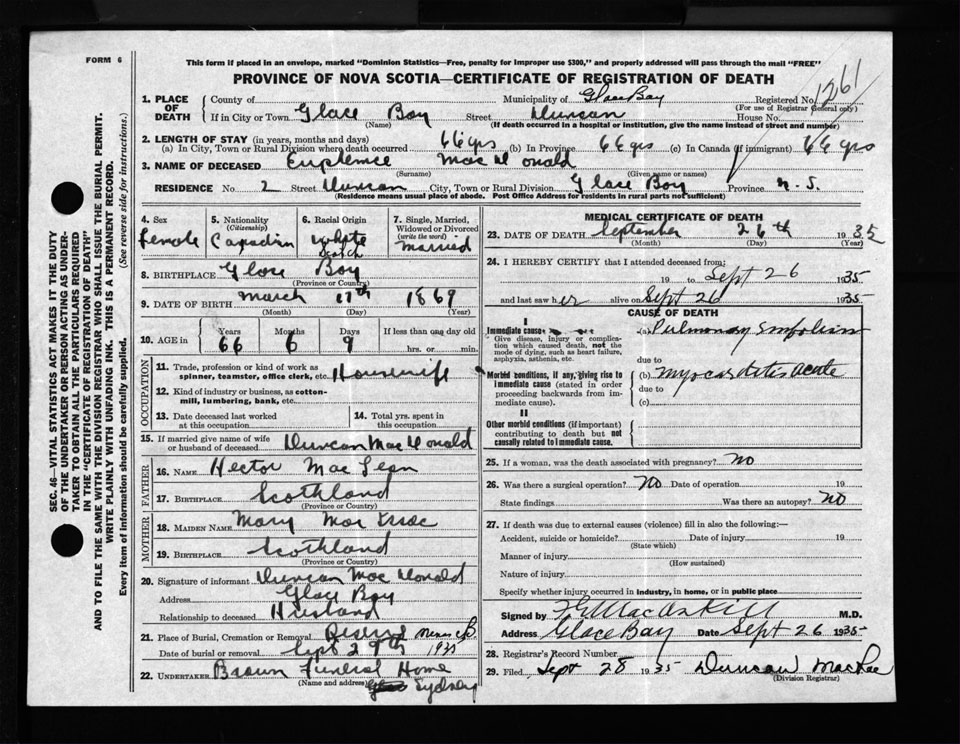 FORM 6
This form if placed in an envelope, marked "Dominion Statistics—Free, penalty for improper use $300," and properly addressed will pass through the mail "FREE"
PROVINCE OF NOVA SCOTIA—CERTIFICATE OF REGISTRATION OF DEATH
1. PLACE OF DEATH
County of Municipality of Glace Bay Registered No. 1261
(For use of Registrar General only)
If in City or Town Glace Bay Street Duncan House No.
(Name) (If death occurred in a hospital or institution, give the name instead of street and number)
2. LENGTH OF STAY (in years, months and days)
(a) In City, Town or Rural Division where death occurred 66 yrs (b) In Province 66 yrs (c) In Canada (if immigrant) 66 yrs
3. NAME OF DECEASED Euphemie Mac Donald
(Surname) (Given name or names)
RESIDENCE No. 2 Street Duncan City, Town or Rural Division Glace Bay Province N. S.
(Residence means usual place of abode. Post Office Address for residents in rural parts not sufficient)
4. Sex
Female
5. Nationality
(Citizenship)
Canadian
6. Racial Origin
White
Scotch
7. Single, Married, Widowed or Divorced
(write the word)
Married
8. BIRTHPLACE Glace Bay
(Province or Country)
9. DATE OF BIRTH March 17th 1869
(Month) (Day) (Year)
10. AGE in
Years Months Days If less than one day old
66 6 9 hrs. or min.
OCCUPATION
11. Trade, profession or kind of work as spinner, teamster, office clerk, etc. Housewife
12. Kind of industry or business, as cotton-mill, lumbering, bank, etc.
13. Date deceased last worked at this occupation
14. Total yrs. spent in this occupation
15. If married give name of wife or husband of deceased Duncan Mac Donald
FATHER
16. NAME Hector Mac Lean
17. BIRTHPLACE Scothland
(Province or Country)
MOTHER
18. MAIDEN NAME Mary Mac Issac
19. BIRTHPLACE Scothland
(Province or Country)
20. Signature of informant Duncan Mac Donald
Address Glace Bay
Relationship to deceased Husband
21. Place of Burial, Cremation or Removal Reserve Mines C.B.
Date of burial or removal Sept 29th 1935
22. UNDERTAKER Brown Funeral Home
(Name and address) Sydney
MEDICAL CERTIFICATE OF DEATH
23. DATE OF DEATH September 26th 1935
(Month) (Day) (Year)
24. I HEREBY CERTIFY that I attended deceased from:
19 to Sept 26 1935
and last saw her alive on Sept 26 1935
CAUSE OF DEATH
I
Immediate cause
Give disease, injury or complication which caused death, not the mode of dying, such as heart failure, asphyxia, asthenia, etc.
(a) Pulmonary Embolism
due to
Morbid conditions, if any, giving rise to immediate cause (stated in order proceeding backwards from immediate cause).
(b) Myocarditis acute
due to
(c)
II
Other morbid conditions (if important) contributing to death but not causally related to immediate cause.
25. If a woman, was the death associated with pregnancy? No
26. Was there a surgical operation? No Date of operation 19
State findings Was there an autopsy? No
27. If death was due to external causes (violence) fill in also the following:—
Accident, suicide or homicide? Date of injury 19
(State which)
Manner of injury
(How sustained)
Nature of injury
Specify whether injury occurred in industry, in home, or in public place
Signed by MacAskill M.D.
Address Glace Bay Date Sept 26 1935
28. Registrar's Record Number
29. Filed Sept 28 1935 Duncan MacRae
(Division Registrar)
SEC. 46—VITAL STATISTICS ACT MAKES IT THE DUTY
OF THE UNDERTAKER OR PERSON ACTING AS UNDER-
TAKER TO OBTAIN ALL THE PARTICULARS REQUIRED
IN THE "CERTIFICATE OF REGISTRATION OF DEATH"
AND TO FILE THE SAME WITH THE DIVISION REGISTRAR WHO SHALL ISSUE THE BURIAL PERMIT.
WRITE PLAINLY WITH UNFADING INK. THIS IS A PERMANENT RECORD.
Every item of information should be carefully supplied. (See reverse side for instructions.)